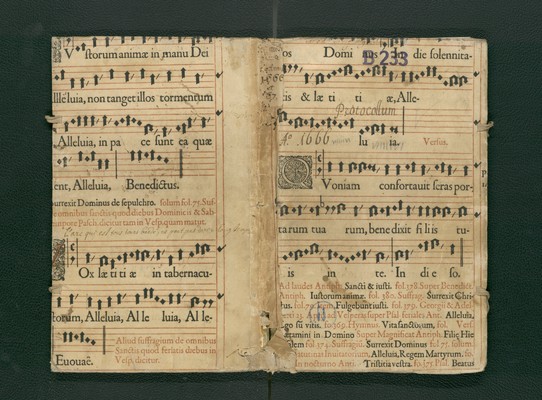 Vstorum animæ in manu Dei
illǽ luia, non tanget illos tormentum
Alleluia, in pa ce sunt ea quæ
ent, Alleluia, Benedictus.
urrexit Dominus de sepulchro. folum fol 75. Suf
omnibus sanctis quod diebus Dominicis & Sab
tempore Pasch. dicitur tam in Vesp. quam matut.
Ox læ ti ti æ in tabernacu-
torum, Alleluia, Al le luia, Al le-
Aliud suffragium de omnibus
Sanctis quod feriatis diebus in
Vesp. dicitur.
Euouaē.
os Domi die solennita-
B 233
tis & læ ti ti æ, Alle-
Protocollum
Aº 1666
lu ia. Versus.
Voniam confortauit seras por-
tarum tua rum, bene dixit fi li is tu-
is in te. In di e so.
Ad laudes Antiph. Sancti & iusti. fol 378. Super Benedict.
Antiph. Iustorum animæ. fol. 380. Suffrag. Surrexit Chri-
tus. Fulgebunt iusti. fol. 379. Georgij & Adel-
Vesp. et super Psal feriales Ant. Alleluia,
Ego sū vitis. fo 369. Hymnus. Vita sanctorum, fol. Vers.
etamini in Domino Super Magnificat Antiph. Filię Hie
alem fol 374. Suffragiū. Surrexit Dominus fol 75. solum
Inuitatorium, Alleluia, Regem Martyrum. fo.
In nocturno Anti Tristitia vestra. fo 375 Psal. Beatus